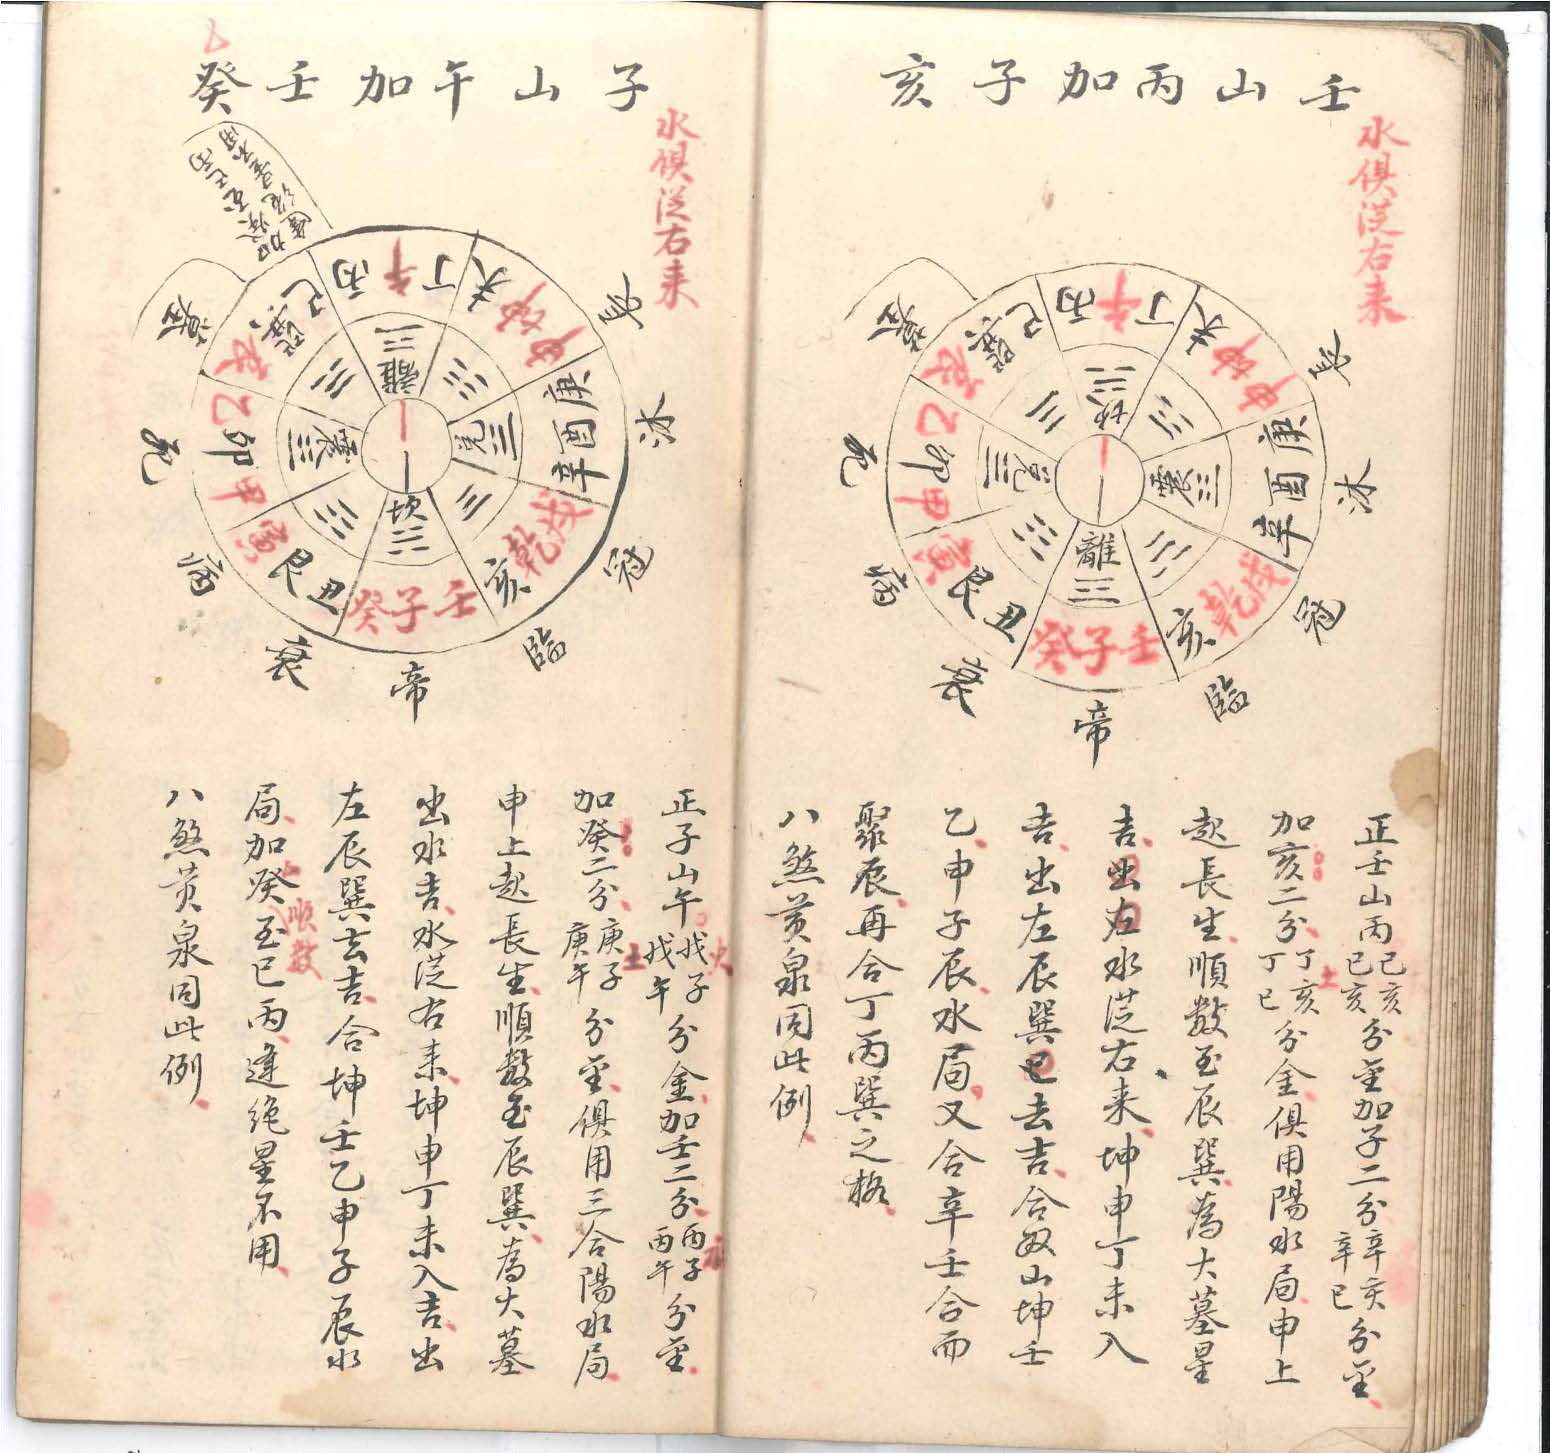 壬山丙加子亥
水俱從右来
巳
丙
午
丁
未
坤
申
庚
酉
辛
戌
乾
亥
壬
子
癸
丑
艮
寅
甲
卯
乙
辰
巽
坎
震
離
兌
長
沐
冠
臨
帝
衰
病
死
墓
正壬山丙己亥己亥分金加子二分辛亥辛巳分金
加亥二分丁亥丁巳分金俱用陽水局申上
起長生順数至辰巽為大墓星
吉出左水從右来坤申丁未入
吉出左辰巽巳去吉合収山坤壬
乙申子辰水局又合辛壬合而
聚辰再合丁丙巽之格
八煞黄泉同此例
子山午加壬癸
水俱從右来
巳
丙
午
丁
未
坤
申
庚
酉
辛
戌
乾
亥
壬
子
癸
丑
艮
寅
甲
卯
乙
辰
巽
離
兌
坎
震
長
沐
冠
臨
帝
衰
病
死
墓
正子山午戊子戊午分金加壬二分丙子丙午分金
加癸二分庚子庚午分金俱用三合陽水局
申上起長生順数至辰巽為大墓
出水吉水從右来坤申丁未入吉出
左辰巽去吉合坤壬乙申子辰水
局加癸至巳丙逢絶星不用
順数
八煞黄泉同此例
火
土
土